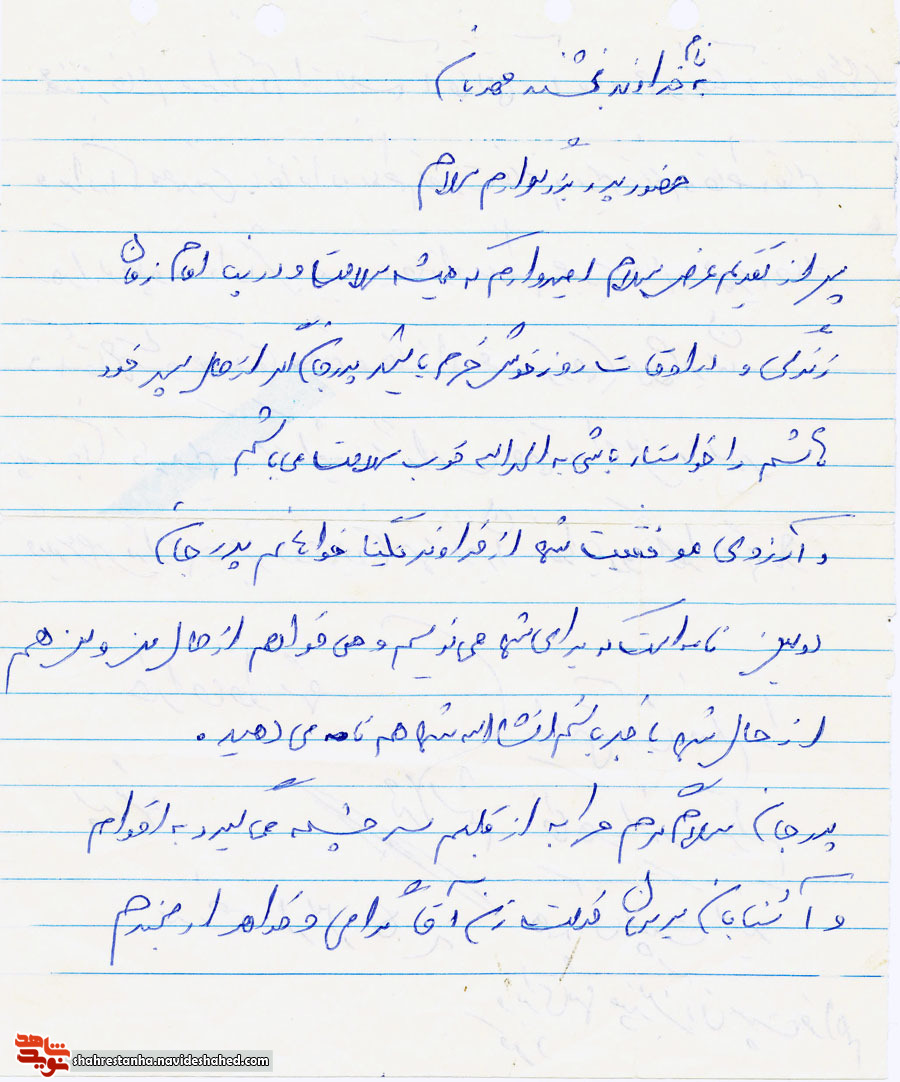 به نام خداوند بخشنده مهربان
حضور پدر بزرگوارم سلام
پس از تقدیم عرض سلام امیدوارم که همیشه سلامت و در پناه امام زمان
زندگی و در اوقات روز خوش خرم باشید پدرجان اگر از حال پسر خود
هاشم را خواستار باشی به الحمدالله خوب سلامت می باشم
و آرزوی موفقیت شما از خداوند یکتا خواهانم پدر جان
دومین نامه است که برای شما می نویسم و می خواهم از حال من و من هم
از حال شما با خبر باشم انشاالله شما هم نامه می دهید.
پدر جان سلام گرم مرا که از قلبم سرچشمه می گیرد به اقوام
و آشنایان برسان خدمت زن آقا گرامی و خواهر ارجمندم
نوید شاهد
shahrestanha.navideshahed.com